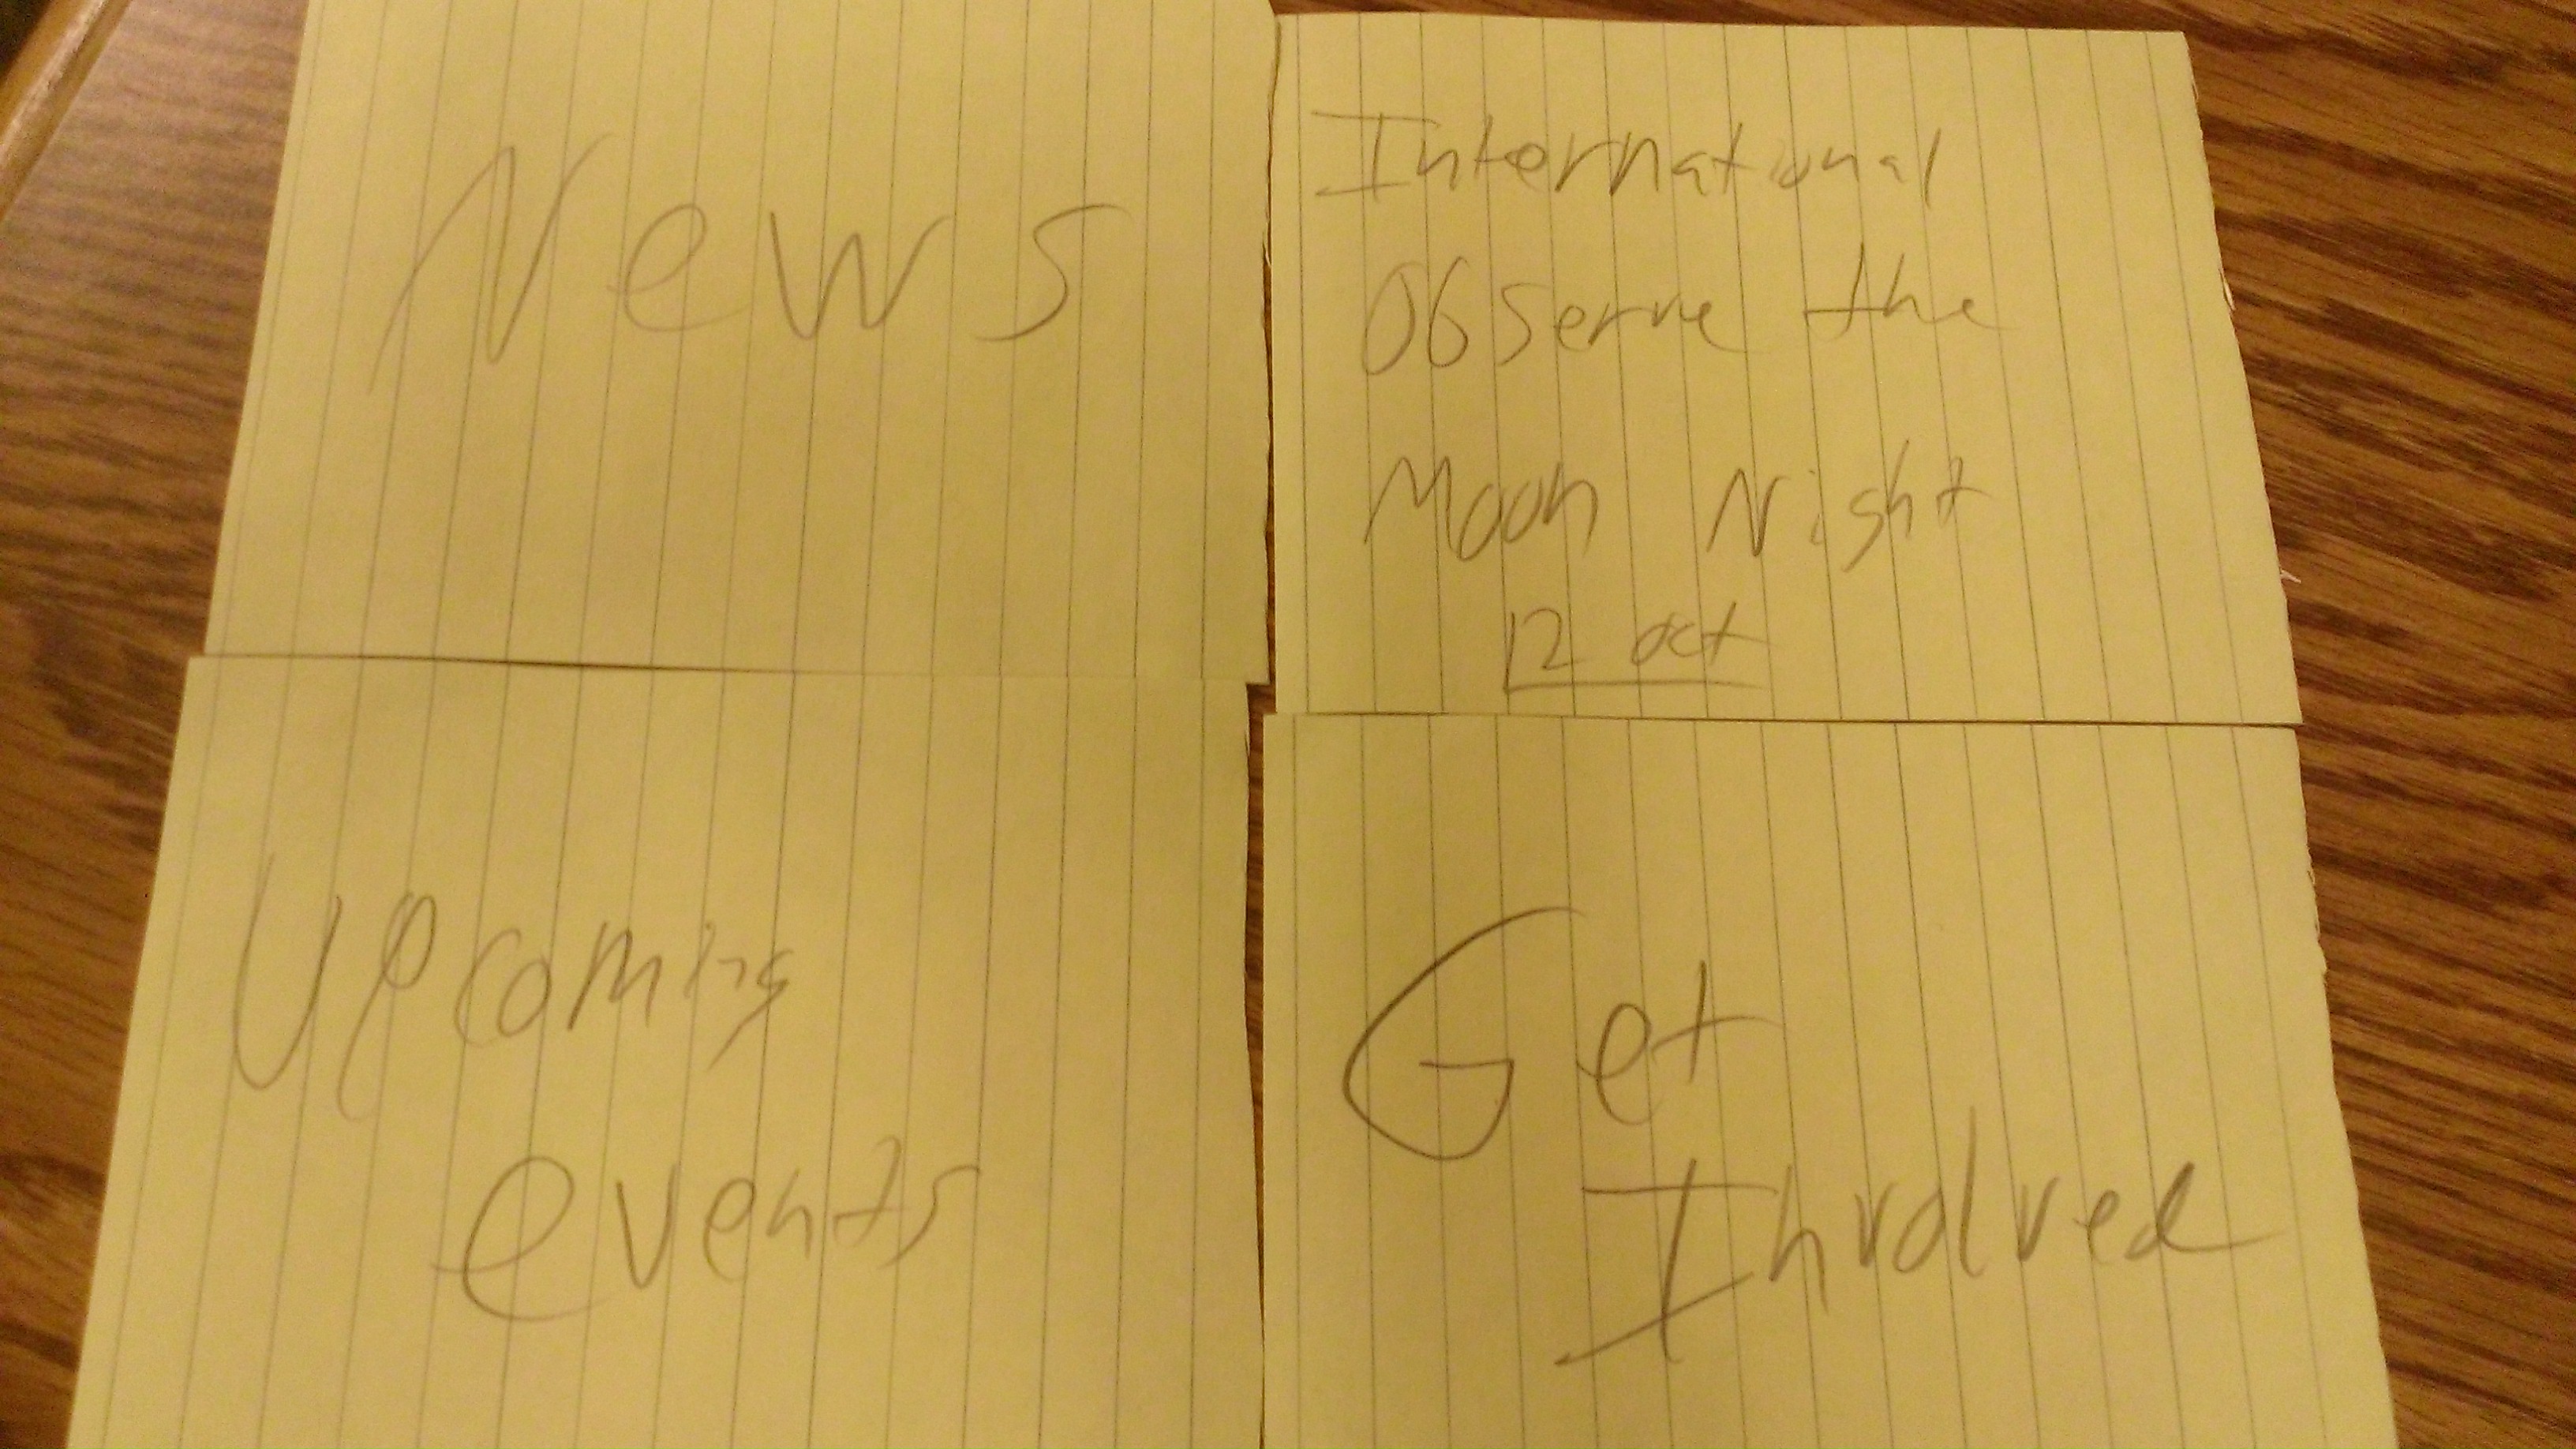 News
International
Observe the
Moon Night
12 oct
Upcoming
events
Get
Involved